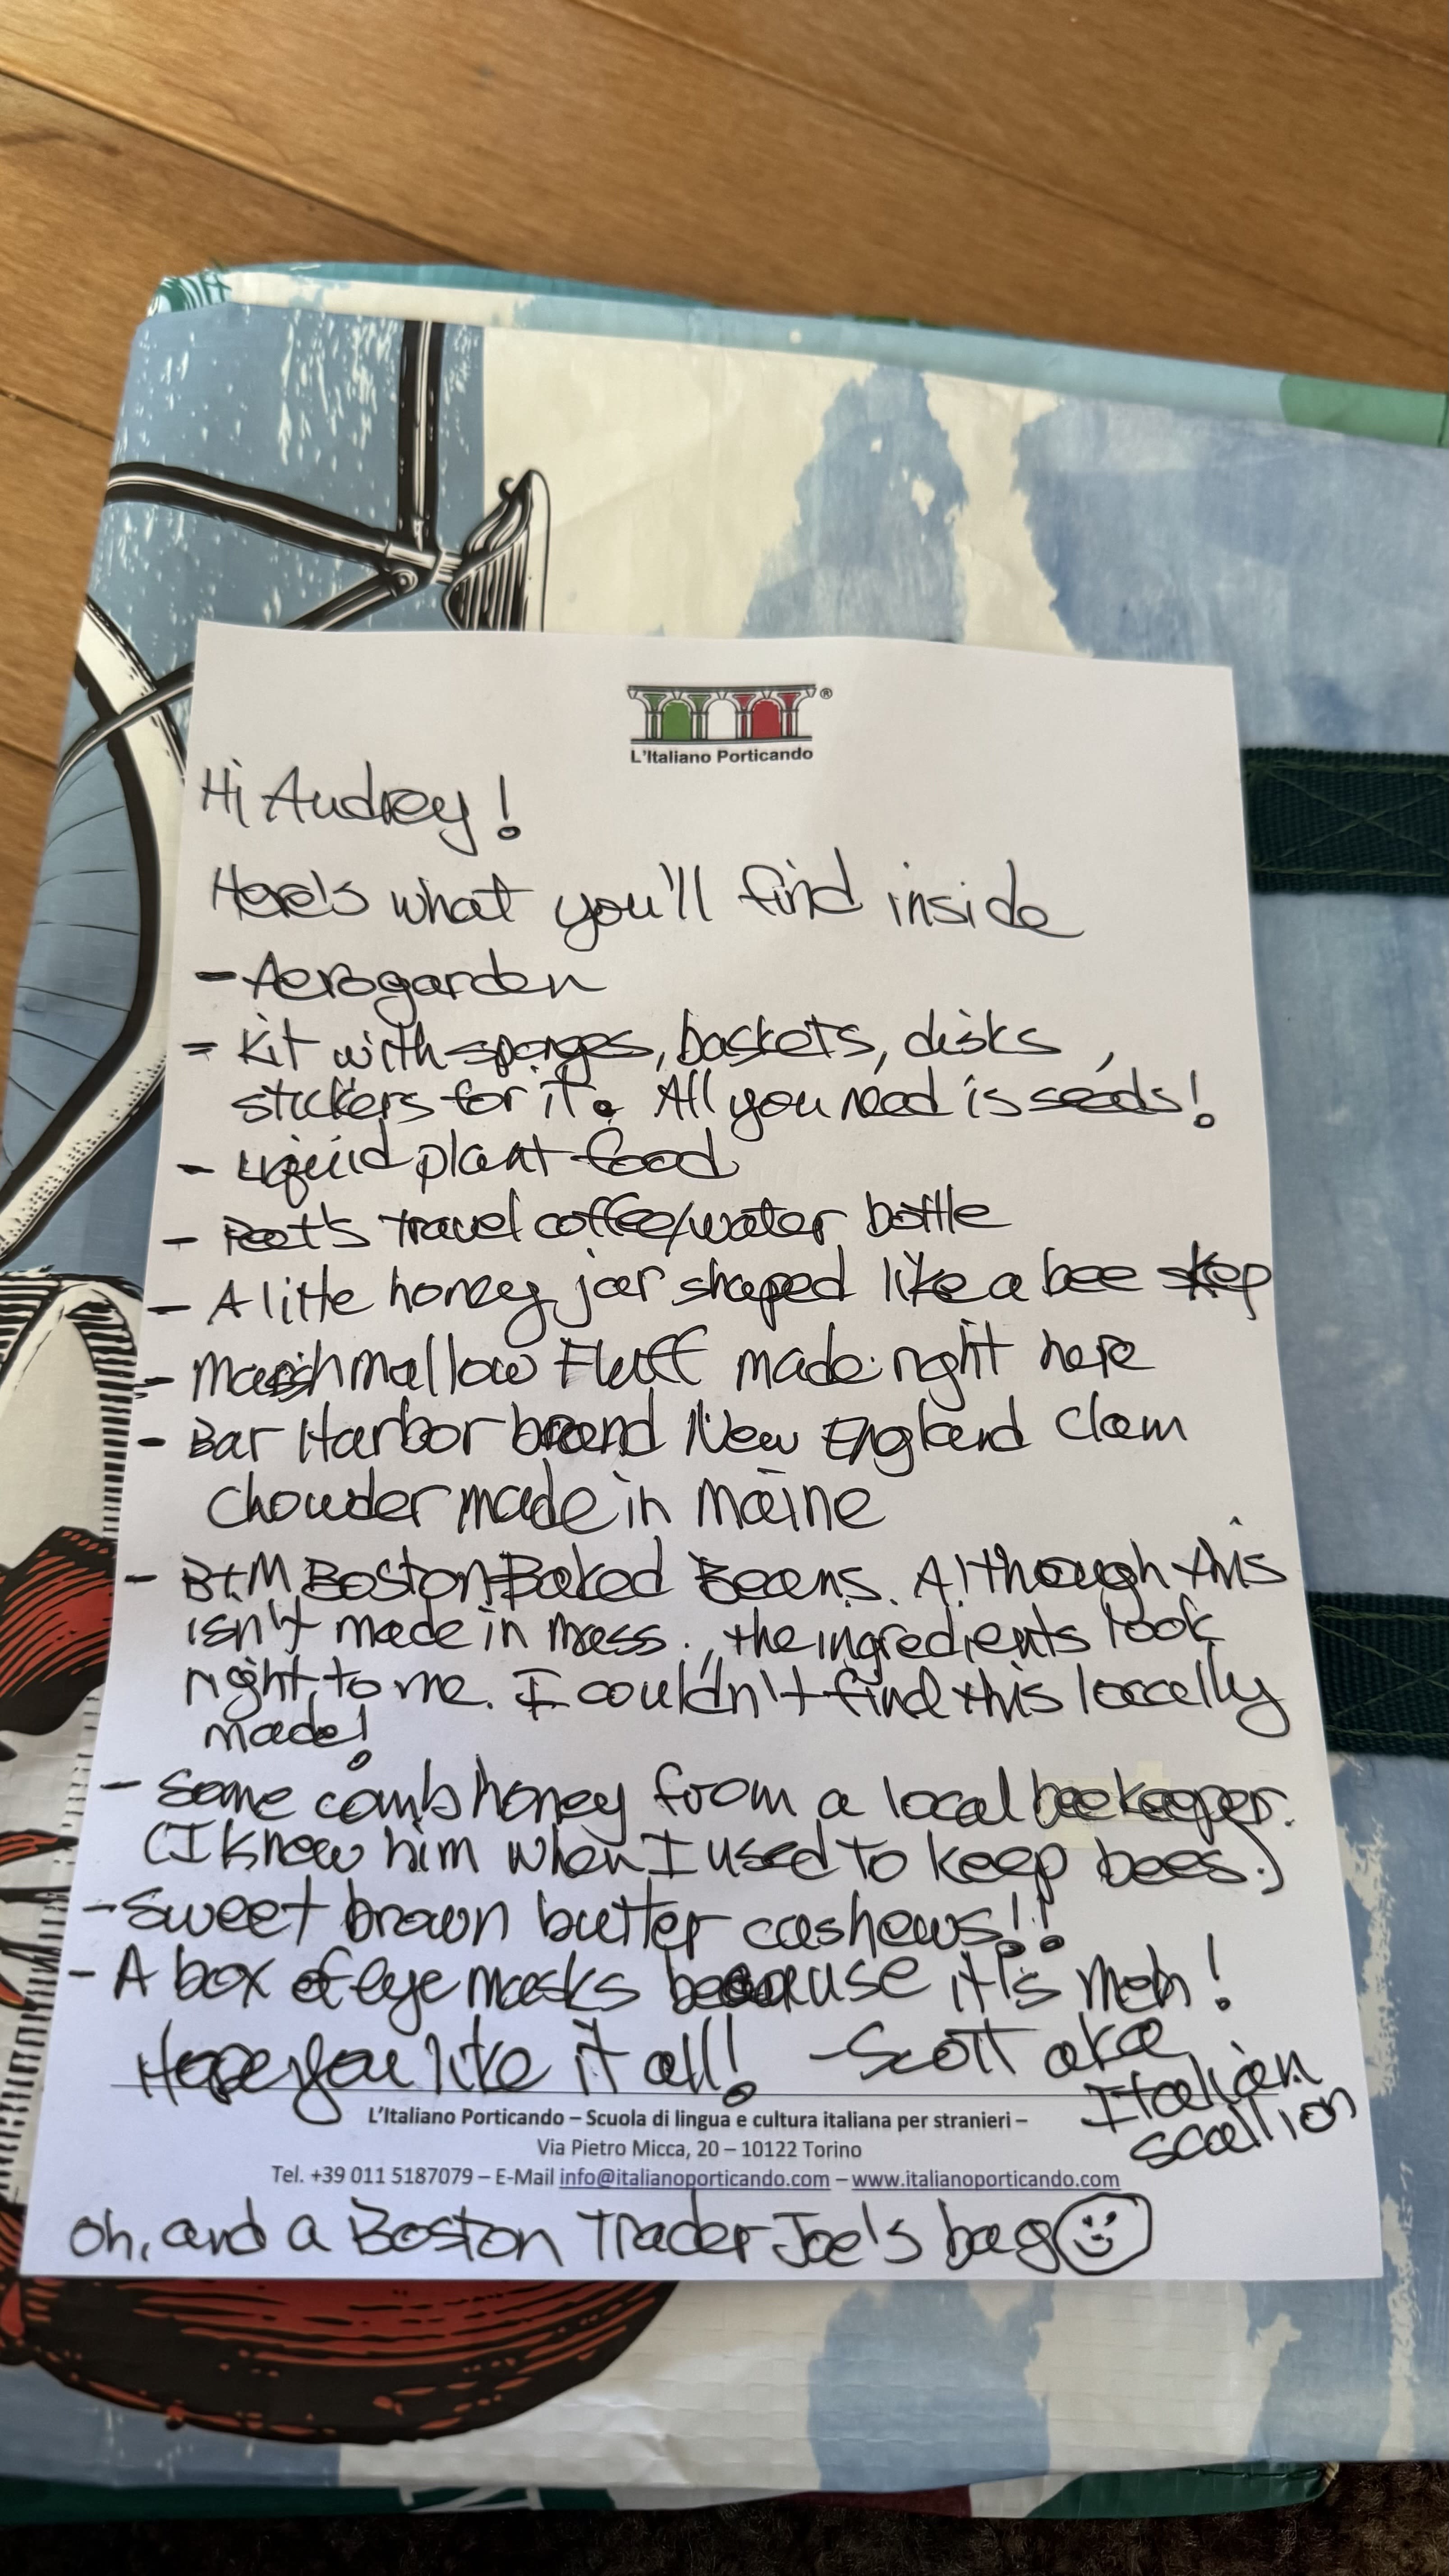 L'Italiano Porticando ®
Hi Audrey!
Here's what you'll find inside
- Aerogarden
- Kit with sponges, baskets, disks,
stickers for it. All you need is seeds!
- Liquid plant food
- Peet's travel coffee/water bottle
- A little honey jar shaped like a bee skep
- Marshmallow Fluff made right here
- Bar Harbor brand New England Clam
Chowder made in Maine
- B+M Boston Baked Beans. Although this
isn't made in Mass., the ingredients look
right to me. I couldn't find this locally
made!
- Some comb honey from a local beekeeper.
(I knew him when I used to keep bees.)
- Sweet brown butter cashews!!
- A box of eye masks because it's meh!
Hope you like it all! - Scott aka
Italian
scallion
L'Italiano Porticando – Scuola di lingua e cultura italiana per stranieri –
Via Pietro Micca, 20 – 10122 Torino
Tel. +39 011 5187079 – E-Mail info@italianoporticando.com – www.italianoporticando.com
Oh, and a Boston Trader Joe's bag